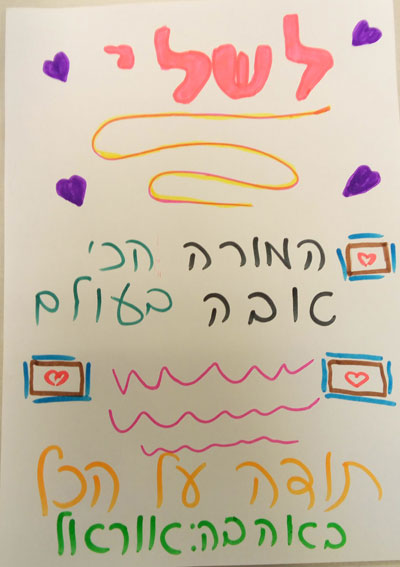 לשלי
המורה הכי
אובה בעולם
תודה על הכל
באהבה: אוראל